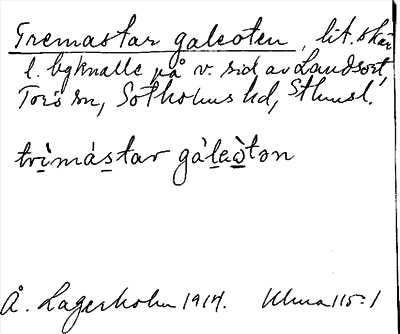 Tremastar galeoten, lit. skär
l. bgknalle på v. sid av Landsort,
Torö sn, Sotholms hd, Sthmsl.
trìmástar gáleòton
Å. Lagerholm 1914. Ulma 115:1